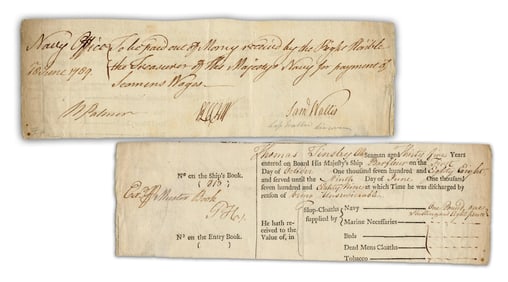 Navy Office To be paid out of Money received by the Right Honble
18 June 1789. the Treasurer of His Majesty's Navy for payment of
Seamens Wages
Palmer Saml Wallis
Thomas Tinsley Seaman aged Thirty five Years
entered on Board His Majesty's Ship Barfleur on the First
Day of October One thousand seven hundred and Eighty Eight
and served until the Ninth Day of June One thousand
seven hundred and Eighty Nine at which Time he was discharged by
reason of being Unserviceable
No on the Ship's Book.
Muster Book
No on the Entry Book.
He hath re-
ceived to the
Value of, in
Slop-Cloaths supplied by
Navy
Marine Necessaries
Beds
Dead Mens Cloaths
Tobacco